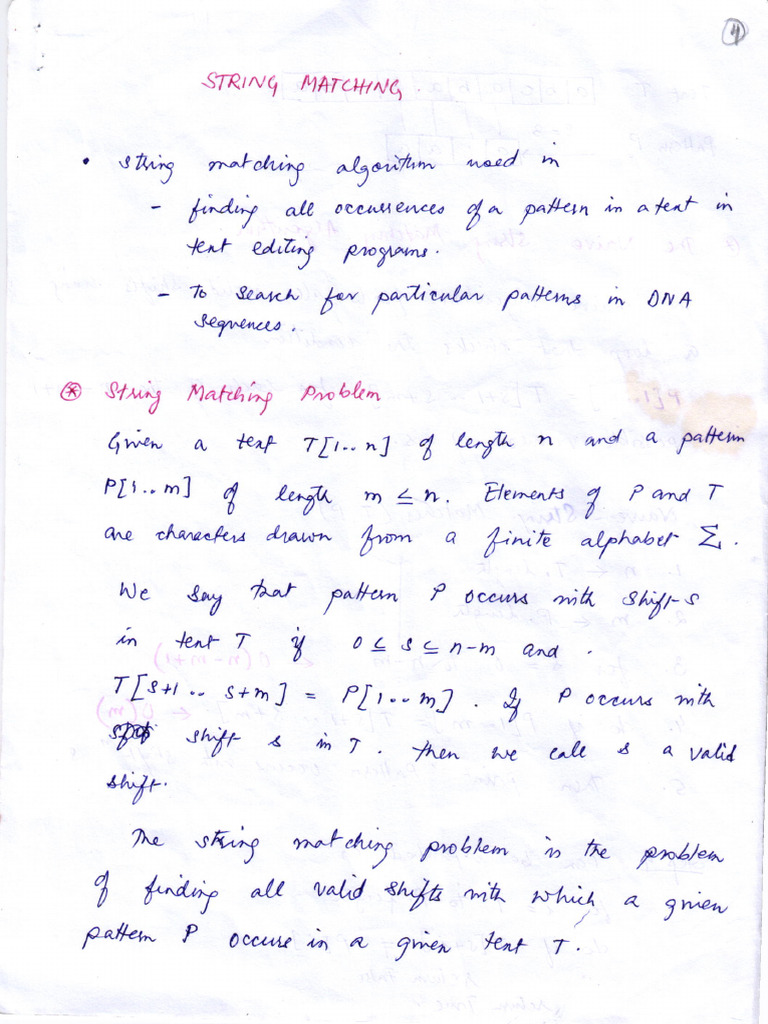 4
STRING MATCHING
• String matching algorithm used in
- finding all occurrences of a pattern in a text in
text editing programs.
- To search for particular patterns in DNA
sequences.
* String Matching Problem
Given a text T[1..n] of length n and a pattern
P[1..m] of length m ≤ n. Elements of P and T
are characters drawn from a finite alphabet Σ.
We say that pattern P occurs with shift-s
in text T if 0 ≤ s ≤ n-m and .
T[s+1 .. s+m] = P[1..m]. If P occurs with
shift s in T. then we call s a valid
shift.
The string matching problem is the problem
of finding all valid shifts with which a given
pattern P occurs in a given text T.